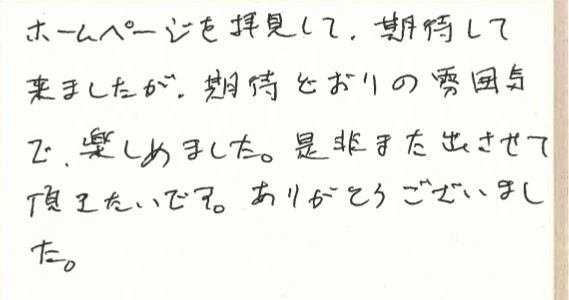 ホームページを拝見して、期待して
来ましたが、期待どおりの雰囲気
で、楽しめました。是非また出させて
頂きたいです。ありがとうございまし
た。